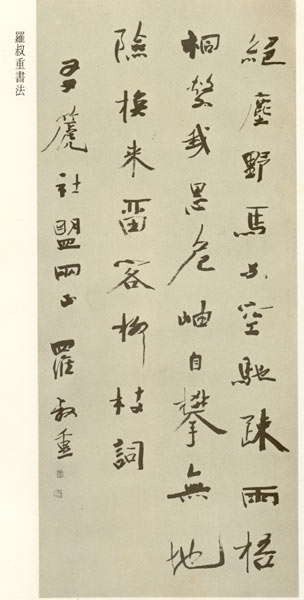 絕塵野馬与空馳疎雨梧
桐縈我思危岫自攀無地
險來畱客柳枝詞
篪社盟兩正 羅叔重
羅叔重書法